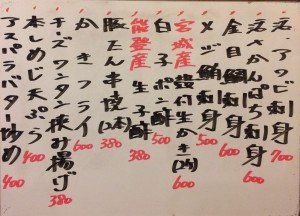 活アワビ刺身 700
活〆かんぱち刺身 600
金目鯛刺身 600
メジ鮪刺身 500
宮城産 殻付生かき 600
白子ポン酢 500
能登産 生子酢 380
豚たん串焼(2本) 380
かきフライ 600
チーズワンタン挟み揚げ 380
本しめじ天ぷら 400
アスパラバター炒め 400